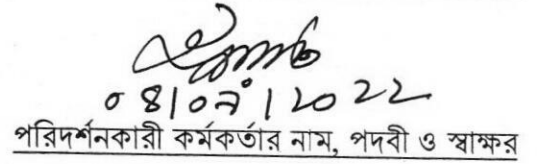 ০৪|০৭|২০২২
পরিদর্শনকারী কর্মকর্তার নাম, পদবী ও স্বাক্ষর